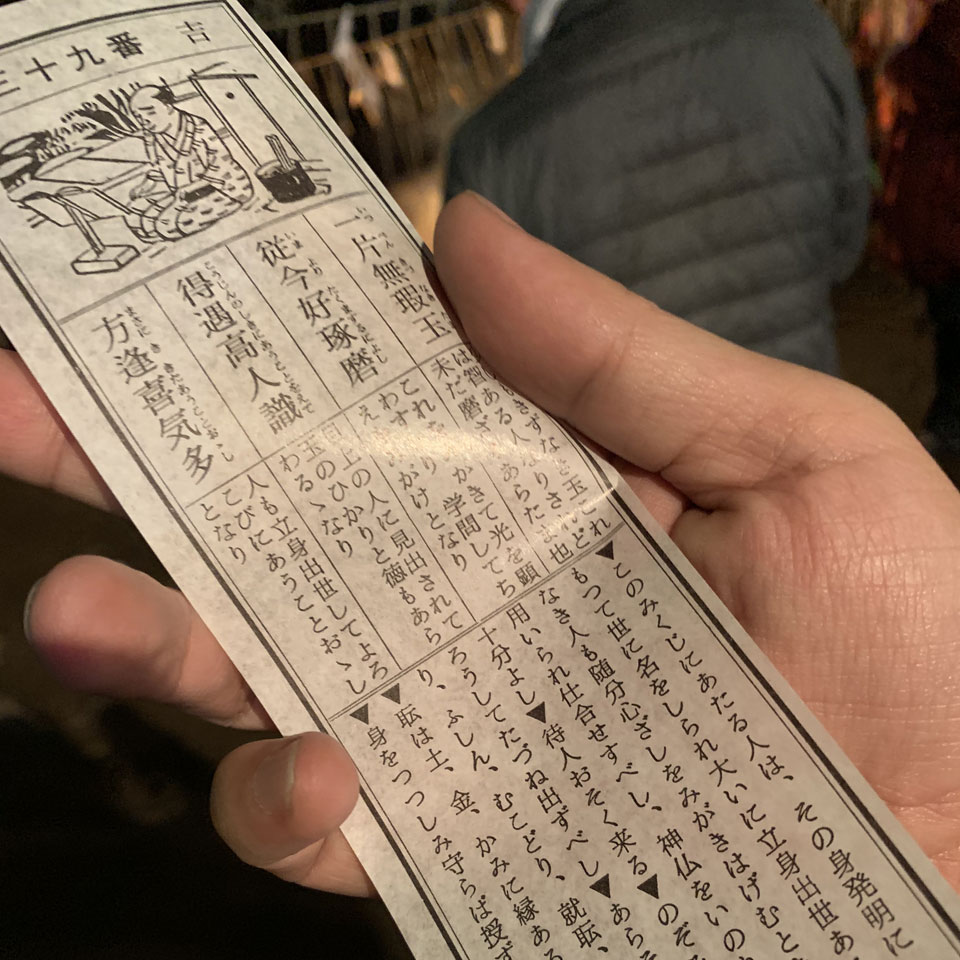 十九番 吉
一片無瑕玉
従今好琢磨
得遇高人識
方逢喜気多
きずなき玉これ
は智ある人なりされど
未だ磨ざ あらたま也
これより かきて光を顕
わす がけ 学問してち
え となり
上の人に見出されて
玉のひかりと徳もあら
わるゝなり
人も立身出世してよろ
こびにあうことおゝし
となり
▼このみくじにあたる人は、その身発明に
もつて世に名をしられ大いに立身出世あ
なき人も随分心ざしをみがきはげむと
用いられ仕合せすべし、神仏をいの
十分よし▼待人おそく来る▼のぞ
ろうしてたづね出ずべし▼あらそ
り、ふしん、むこどり、就耺、
▼耺は土、金、かみに縁ある
▼身をつつしみ守らば授ず